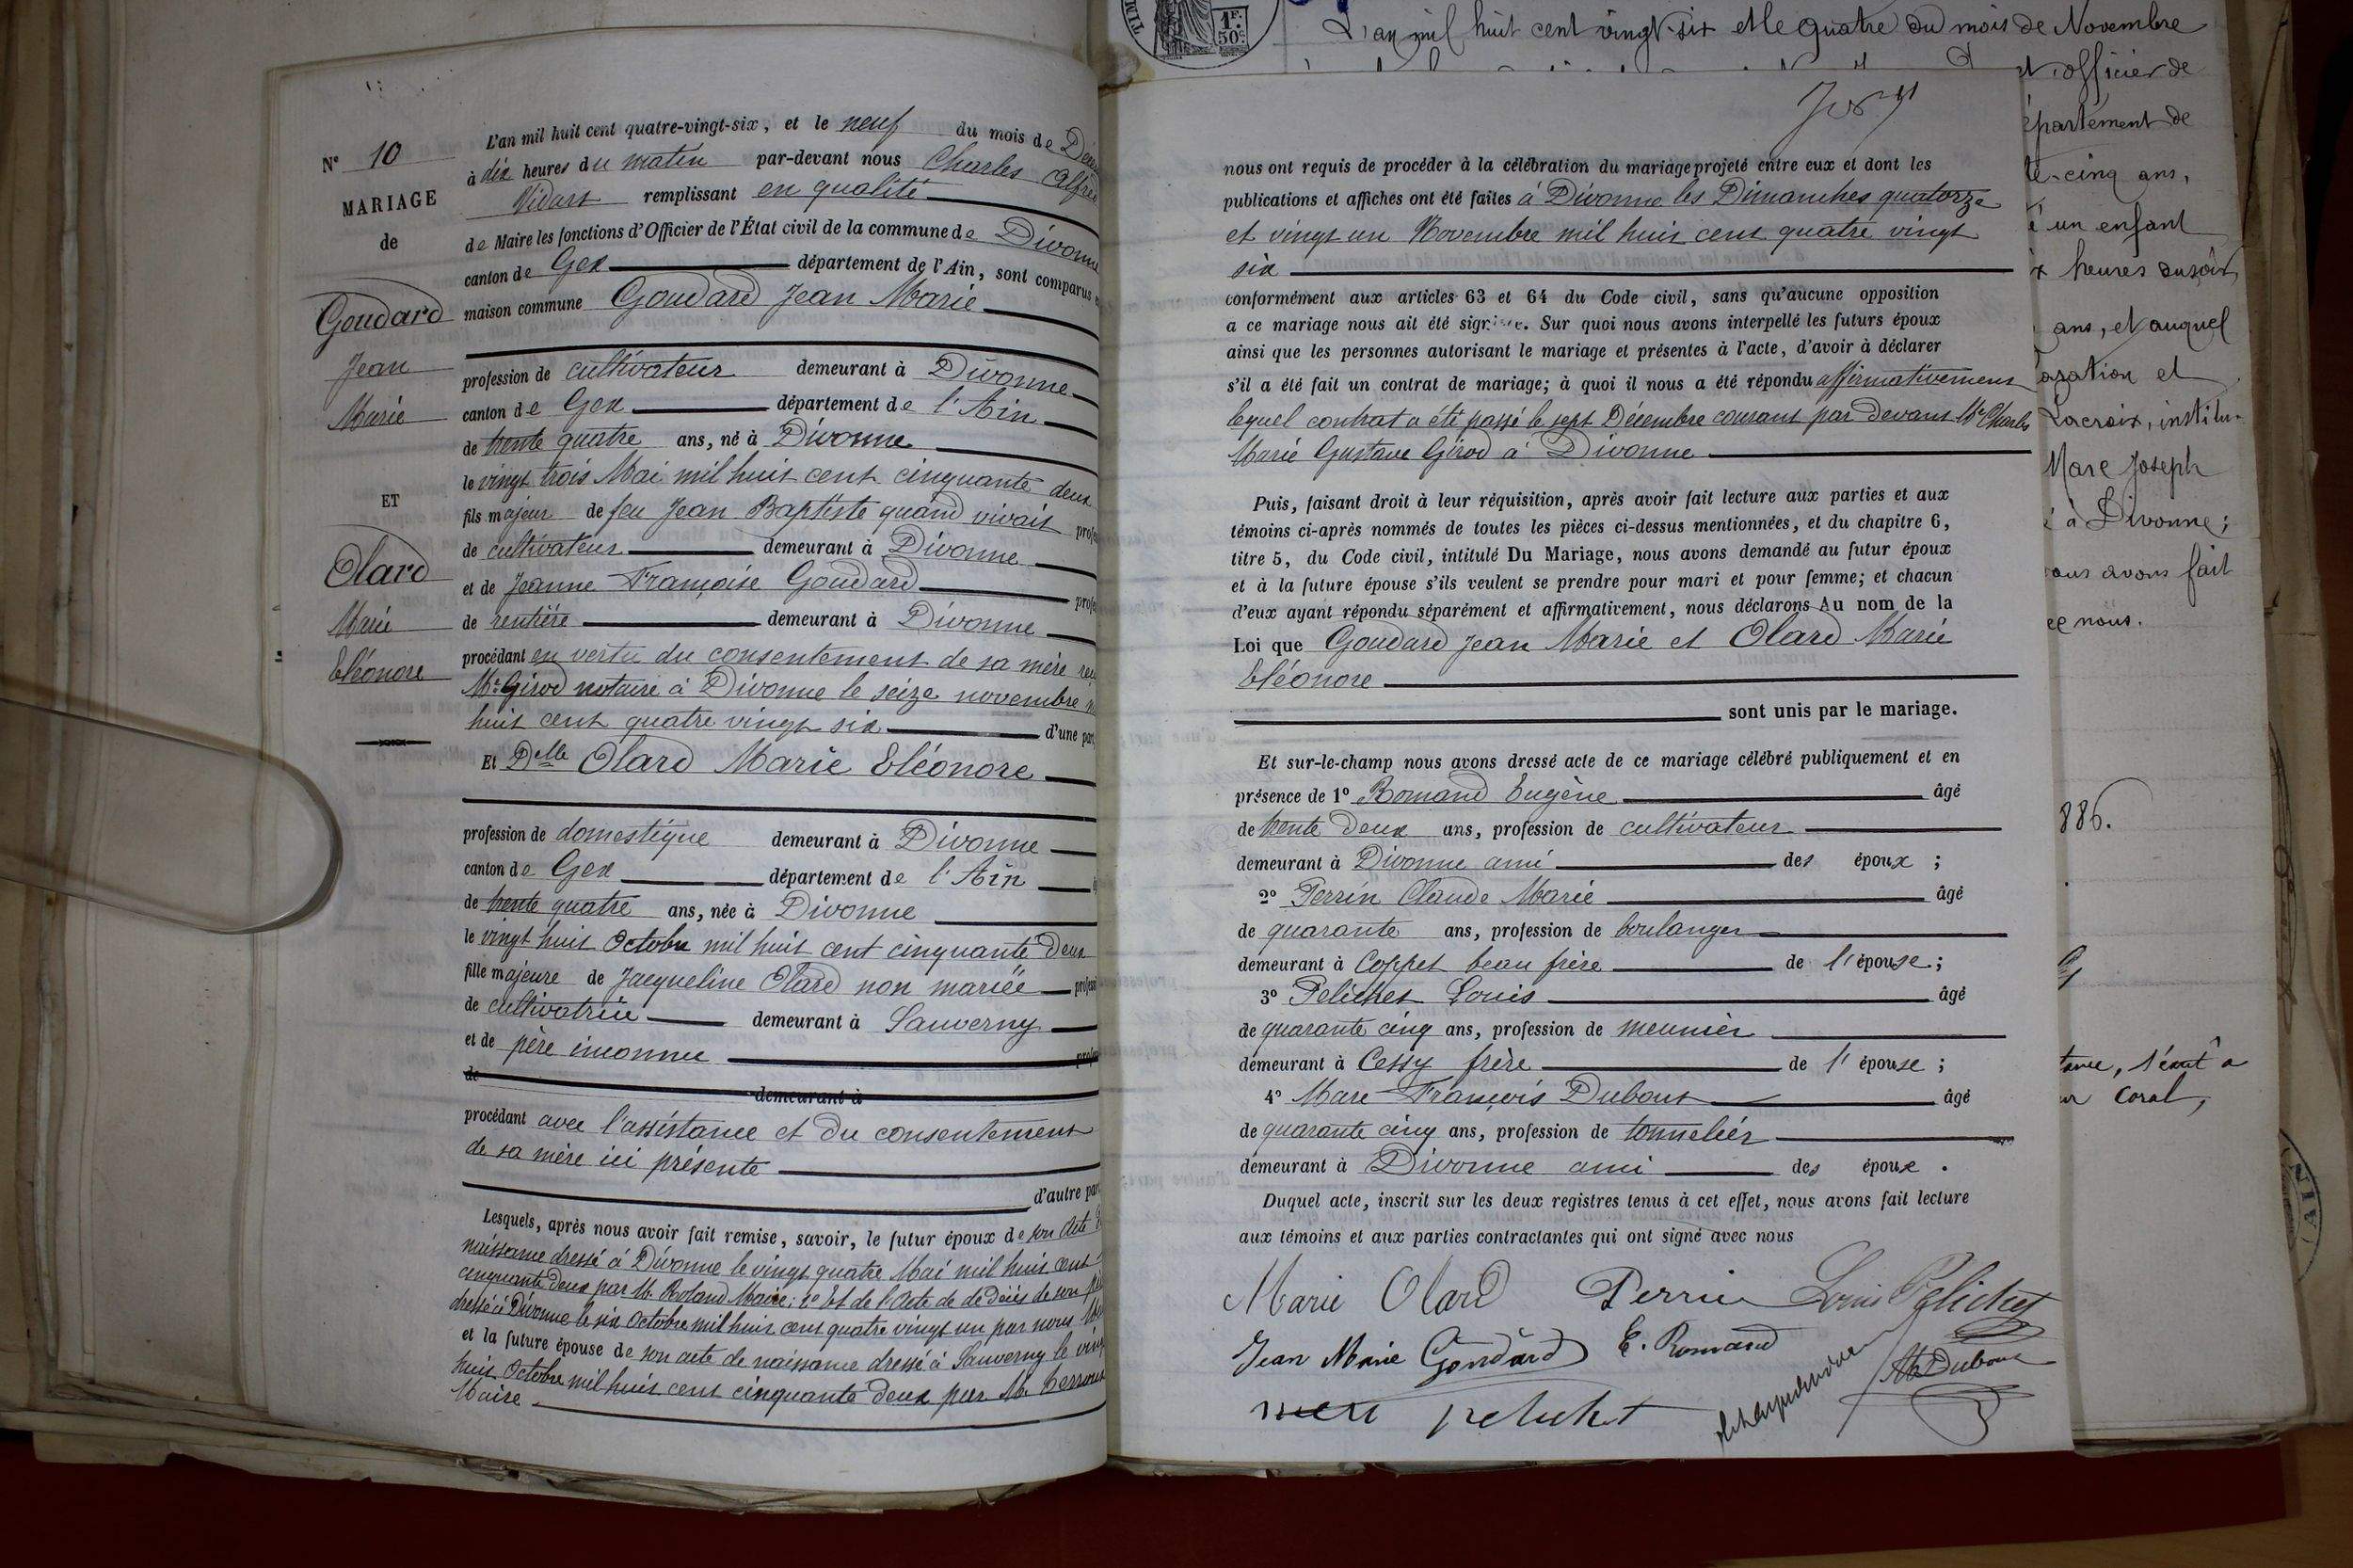 N° 10
MARIAGE
de
Goudard
Jean
Marie
ET
Olard
Marie
Eléonore
L'an mil huit cent quatre-vingt-six, et le neuf du mois de
à dix heures du matin par-devant nous Charles Alfre
Vidart remplissant en qualité
de Maire les fonctions d'Officier de l'État civil de la commune de Divonne
canton de Gex département de l'Ain, sont comparus
maison commune Goudard Jean Marie
profession de cultivateur demeurant à Divonne
canton de Gex département de l'Ain
de trente quatre ans, né à Divonne
le vingt trois Mai mil huit cent cinquante deux
fils majeur de feu Jean Baptiste quand vivait
de cultivateur demeurant à Divonne
et de Jeanne Françoise Goudard
de rentière demeurant à Divonne
procédant en vertu du consentement de sa mère
Me Girod notaire à Divonne le seize novembre
huit cent quatre vingt six d'une part
Et Delle Olard Marie Eléonore
profession de domestique demeurant à Divonne
canton de Gex département de l'Ain
de trente quatre ans, née à Divonne
le vingt huit Octobre mil huit cent cinquante deux
fille majeure de Jacqueline Olard non mariée
de cultivatrice demeurant à Sauverny
et de père inconnu
de demeurant à
procédant avec l'assistance et du consentement
de sa mère ici présente
d'autre par
Lesquels, après nous avoir fait remise, savoir, le futur époux de son acte
naissance dressé à Divonne le vingt quatre Mai mil huit cent
cinquante deux par M. Roland Maire; 2° Et de l'Acte de décès de son
dressé à Divonne le six Octobre mil huit cent quatre vingt un par nous
et la future épouse de son acte de naissance dressé à Sauverny le
huit Octobre mil huit cent cinquante deux par M.
Maire
nous ont requis de procéder à la célébration du mariage projeté entre eux et dont les
publications et affiches ont été faites à Divonne les Dimanches quatorze
et vingt un Novembre mil huit cent quatre vingt
six
conformément aux articles 63 et 64 du Code civil, sans qu'aucune opposition
a ce mariage nous ait été signifiée. Sur quoi nous avons interpellé les futurs époux
ainsi que les personnes autorisant le mariage et présentes à l'acte, d'avoir à déclarer
s'il a été fait un contrat de mariage; à quoi il nous a été répondu affirmativement
lequel contrat a été passé le sept Décembre courant par devant Me Charles
Marie Gustave Girod à Divonne
Puis, faisant droit à leur réquisition, après avoir fait lecture aux parties et aux
témoins ci-après nommés de toutes les pièces ci-dessus mentionnées, et du chapitre 6,
titre 5, du Code civil, intitulé Du Mariage, nous avons demandé au futur époux
et à la future épouse s'ils veulent se prendre pour mari et pour femme; et chacun
d'eux ayant répondu séparément et affirmativement, nous déclarons Au nom de la
Loi que Goudard Jean Marie et Olard Marie
Eléonore
sont unis par le mariage.
Et sur-le-champ nous avons dressé acte de ce mariage célébré publiquement et en
présence de 1° Romand Eugène âgé
de trente deux ans, profession de cultivateur
demeurant à Divonne ami des époux ;
2° Perrin Claude Marie âgé
de quarante ans, profession de boulanger
demeurant à Coppet beau frère de l'épouse ;
3° Pelichet Louis âgé
de quarante cinq ans, profession de meunier
demeurant à Cessy frère de l'épouse ;
4° Marc François Dubout âgé
de quarante cinq ans, profession de tonnelier
demeurant à Divonne ami des époux .
Duquel acte, inscrit sur les deux registres tenus à cet effet, nous avons fait lecture
aux témoins et aux parties contractantes qui ont signé avec nous
Marie Olard Perrin Louis Pelichet
Jean Marie Goudard E. Romand
Dubout
L'an mil huit cent vingt-six et le quatre du mois de Novembre
1F.
50c.
et officier de
épartement de
te-cinq ans,
é un enfant
x heures du soir,
ans, et auquel
aration et
Lacroix, institu-
Marc Joseph
é à Divonne;
ous avons fait
ec nous.
886.
Coral,